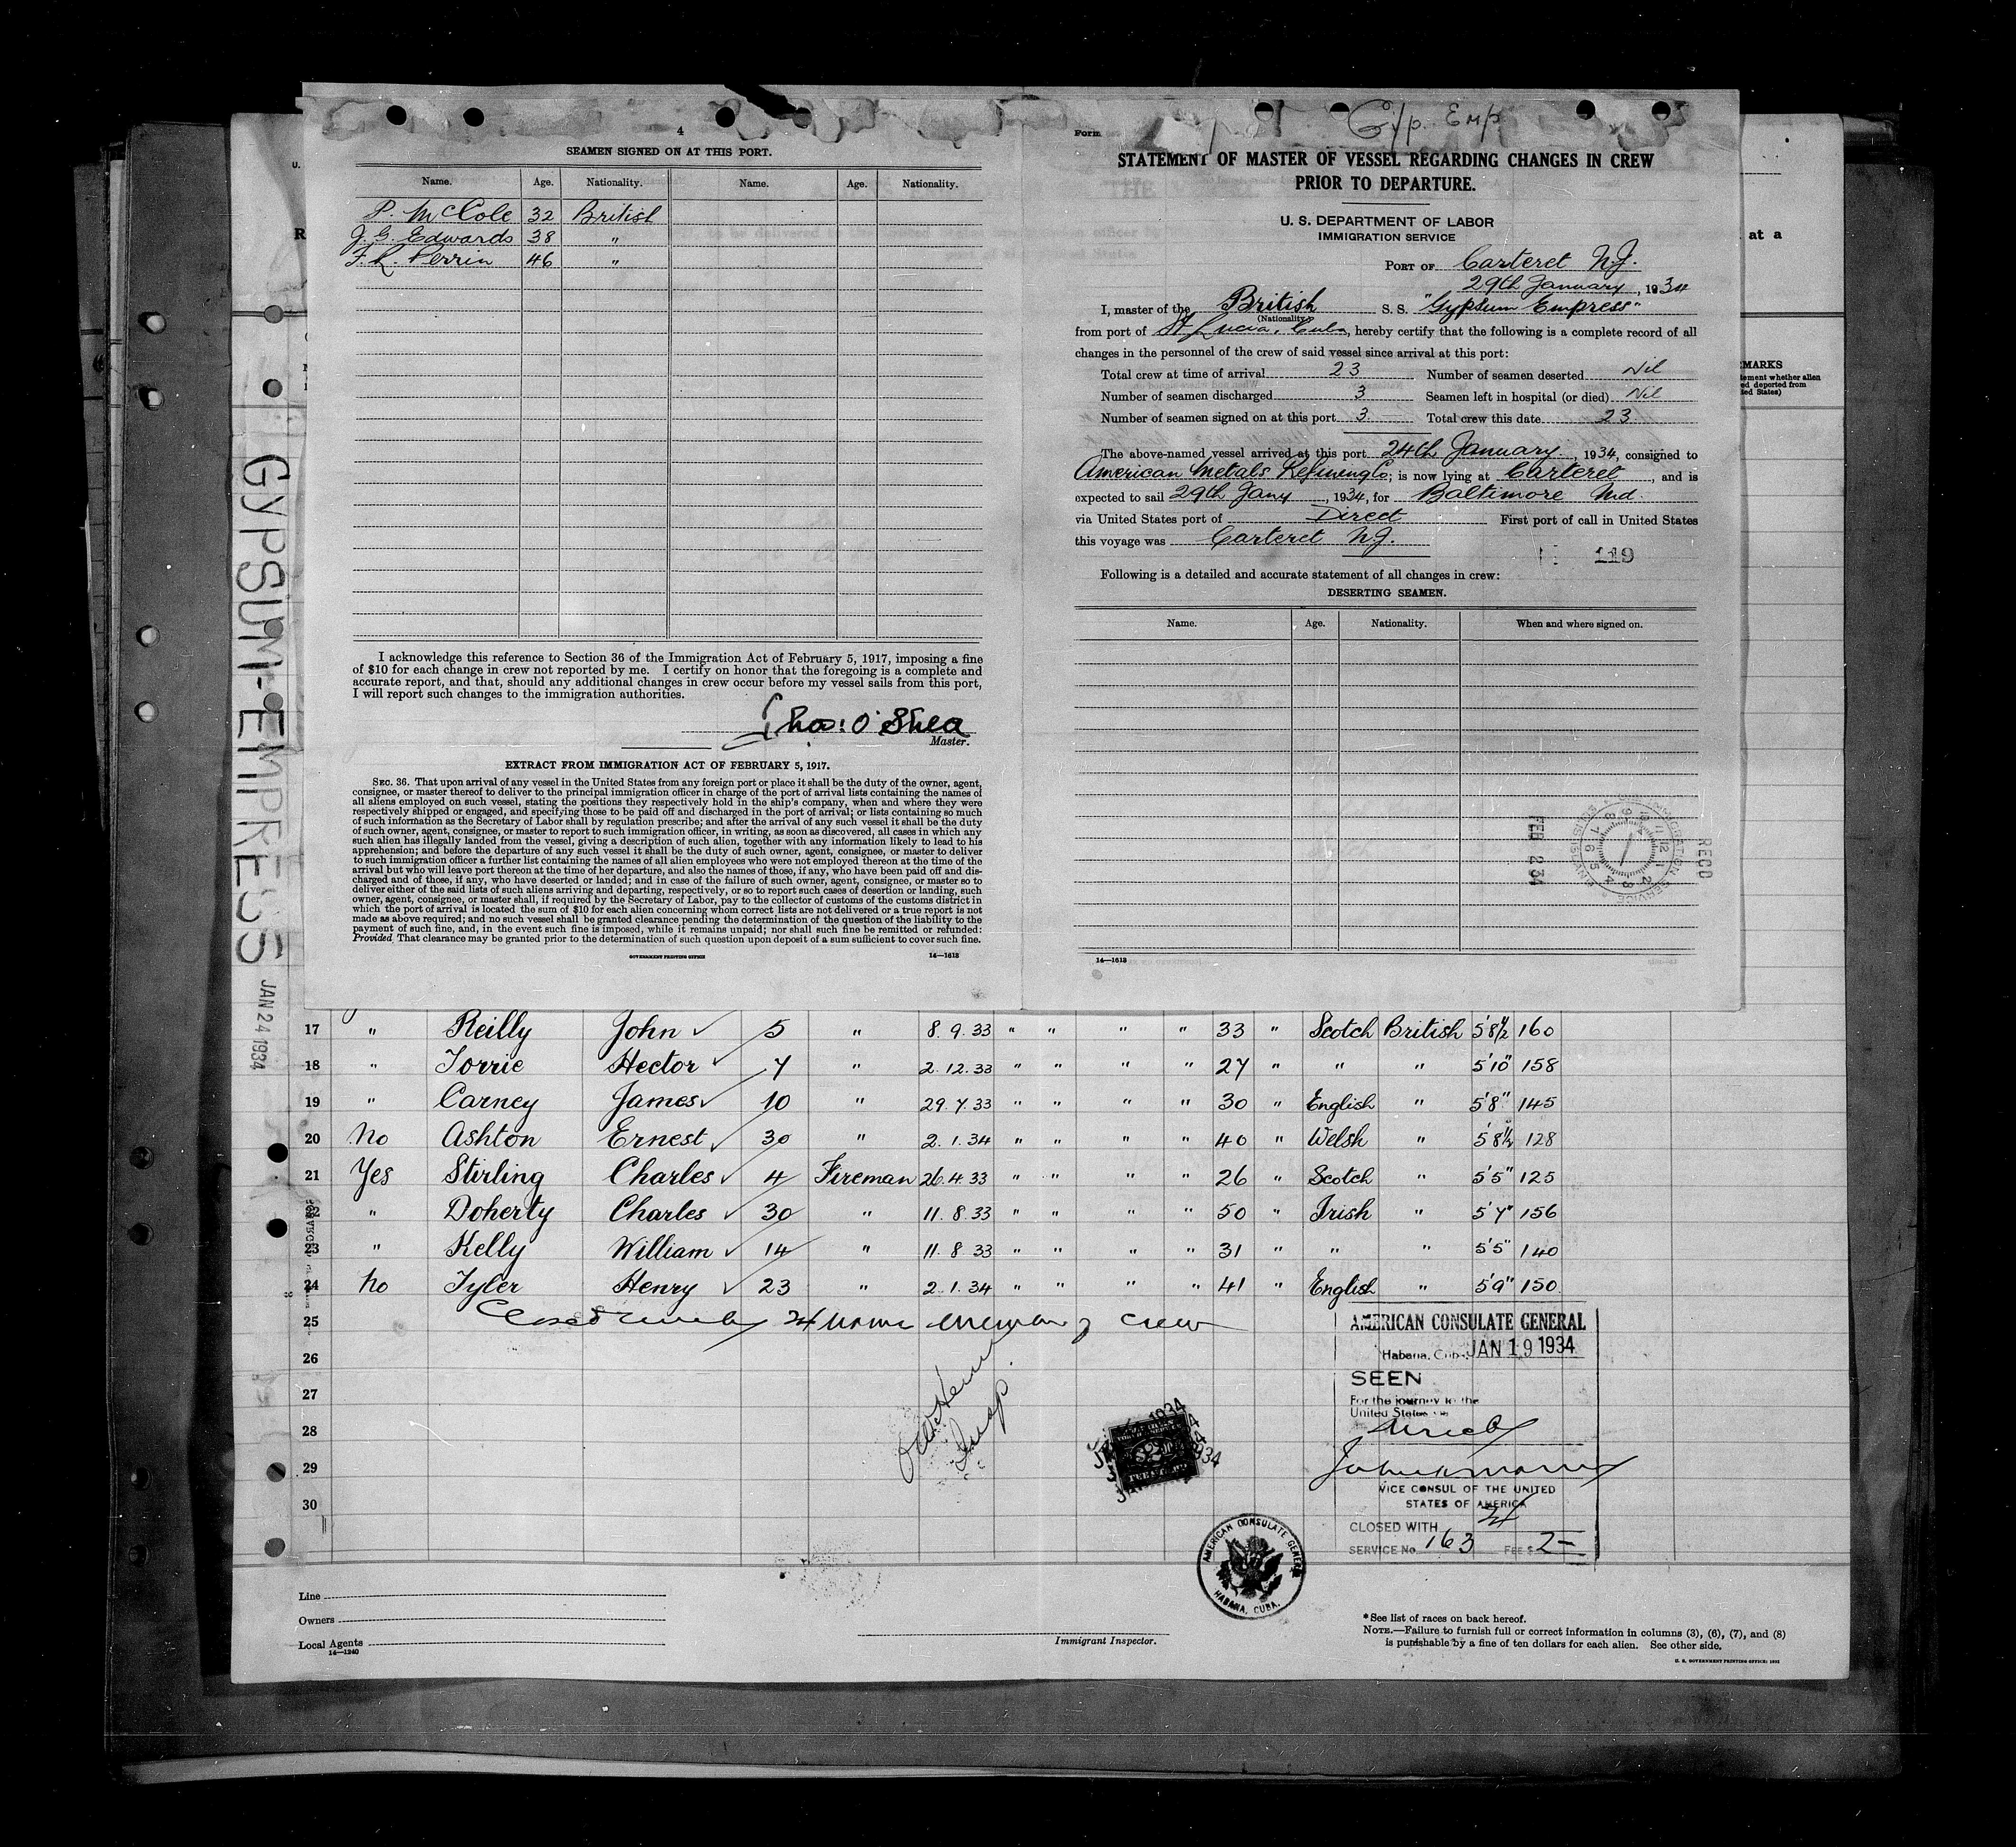 4
SEAMEN SIGNED ON AT THIS PORT.
Name. Age. Nationality. Name. Age. Nationality.
P. McCole 32 British
J. G. Edwards 38 "
F. L. Perrin 46 "
I acknowledge this reference to Section 36 of the Immigration Act of February 5, 1917, imposing a fine
of $10 for each change in crew not reported by me. I certify on honor that the foregoing is a complete and
accurate report, and that, should any additional changes in crew occur before my vessel sails from this port,
I will report such changes to the immigration authorities.
Chas: O'Shea
Master.
EXTRACT FROM IMMIGRATION ACT OF FEBRUARY 5, 1917.
SEC. 36. That upon arrival of any vessel in the United States from any foreign port or place it shall be the duty of the owner, agent,
consignee, or master thereof to deliver to the principal immigration officer in charge of the port of arrival lists containing the names of
all aliens employed on such vessel, stating the positions they respectively hold in the ship's company, when and where they were
respectively shipped or engaged, and specifying those to be paid off and discharged in the port of arrival; or lists containing so much
of such information as the Secretary of Labor shall by regulation prescribe; and after the arrival of any such vessel it shall be the duty
of such owner, agent, consignee, or master to report to such immigration officer, in writing, as soon as discovered, all cases in which any
such alien has illegally landed from the vessel, giving a description of such alien, together with any information likely to lead to his
apprehension; and before the departure of any such vessel it shall be the duty of such owner, agent, consignee, or master to deliver
to such immigration officer a further list containing the names of all alien employees who were not employed thereon at the time of the
arrival but who will leave port thereon at the time of her departure, and also the names of those, if any, who have been paid off and dis-
charged and of those, if any, who have deserted or landed; and in case of the failure of such owner, agent, consignee, or master so to
deliver either of the said lists of such aliens arriving and departing, respectively, or so to report such cases of desertion or landing, such
owner, agent, consignee, or master shall, if required by the Secretary of Labor, pay to the collector of customs of the customs district in
which the port of arrival is located the sum of $10 for each alien concerning whom correct lists are not delivered or a true report is not
made as above required; and no such vessel shall be granted clearance pending the determination of the question of the liability to the
payment of such fine, and, in the event such fine is imposed, while it remains unpaid; nor shall such fine be remitted or refunded:
Provided, That clearance may be granted prior to the determination of such question upon deposit of a sum sufficient to cover such fine.
GOVERNMENT PRINTING OFFICE 14—1618
Form
Gyp. Emp
STATEMENT OF MASTER OF VESSEL REGARDING CHANGES IN CREW
PRIOR TO DEPARTURE.
U. S. DEPARTMENT OF LABOR
IMMIGRATION SERVICE
PORT OF Carteret N.J.
29th January, 1934
I, master of the British S. S. "Gypsum Empress"
(Nationality)
from port of St Lucia, Cuba, hereby certify that the following is a complete record of all
changes in the personnel of the crew of said vessel since arrival at this port:
Total crew at time of arrival 23 Number of seamen deserted Nil
Number of seamen discharged 3 Seamen left in hospital (or died) Nil
Number of seamen signed on at this port 3 Total crew this date 23
The above-named vessel arrived at this port 24th January, 1934, consigned to
American Metals Refining Co; is now lying at Carteret, and is
expected to sail 29th Jany, 1934, for Baltimore Md.
via United States port of Direct First port of call in United States
this voyage was Carteret N.J.
119
Following is a detailed and accurate statement of all changes in crew:
DESERTING SEAMEN.
Name. Age. Nationality. When and where signed on.
REC'D
FEB 2 34
IMMIGRATION SERVICE
14—1618
at a
MARKS
GYPSUM-EMPRESS
JAN 24 1934
17 " Reilly John 5 " 8.9.33 " " " " 33 " Scotch British 5'8½ 160
18 " Torrie Hector 7 " 2.12.33 " " " " 27 " " " 5'10" 158
19 " Carney James 10 " 29.7.33 " " " " 30 " English " 5'8" 145
20 No Ashton Ernest 30 " 2.1.34 " " " " 40 " Welsh " 5'8½ 128
21 Yes Stirling Charles 4 Fireman 26.4.33 " " " " 26 " Scotch " 5'5" 125
22 " Doherty Charles 30 " 11.8.33 " " " " 50 " Irish " 5'7" 156
23 " Kelly William 14 " 11.8.33 " " " " 31 " " " 5'5" 140
24 No Tyler Henry 23 " 2.1.34 " " " " 41 " English " 5'9" 150
25 Closed 24 crew
26
27
28
29
30
AMERICAN CONSULATE GENERAL
Habana, Cuba JAN 19 1934
SEEN
For the journey to the
United States via
VICE CONSUL OF THE UNITED
STATES OF AMERICA
CLOSED WITH 24
SERVICE No. 163 FEE $ 2—
AMERICAN CONSULATE GENERAL
HABANA, CUBA.
Line
Owners
Local Agents
14—1240
Immigrant Inspector.
*See list of races on back hereof.
NOTE.—Failure to furnish full or correct information in columns (3), (6), (7), and (8)
is punishable by a fine of ten dollars for each alien. See other side.
U. S. GOVERNMENT PRINTING OFFICE: 1932